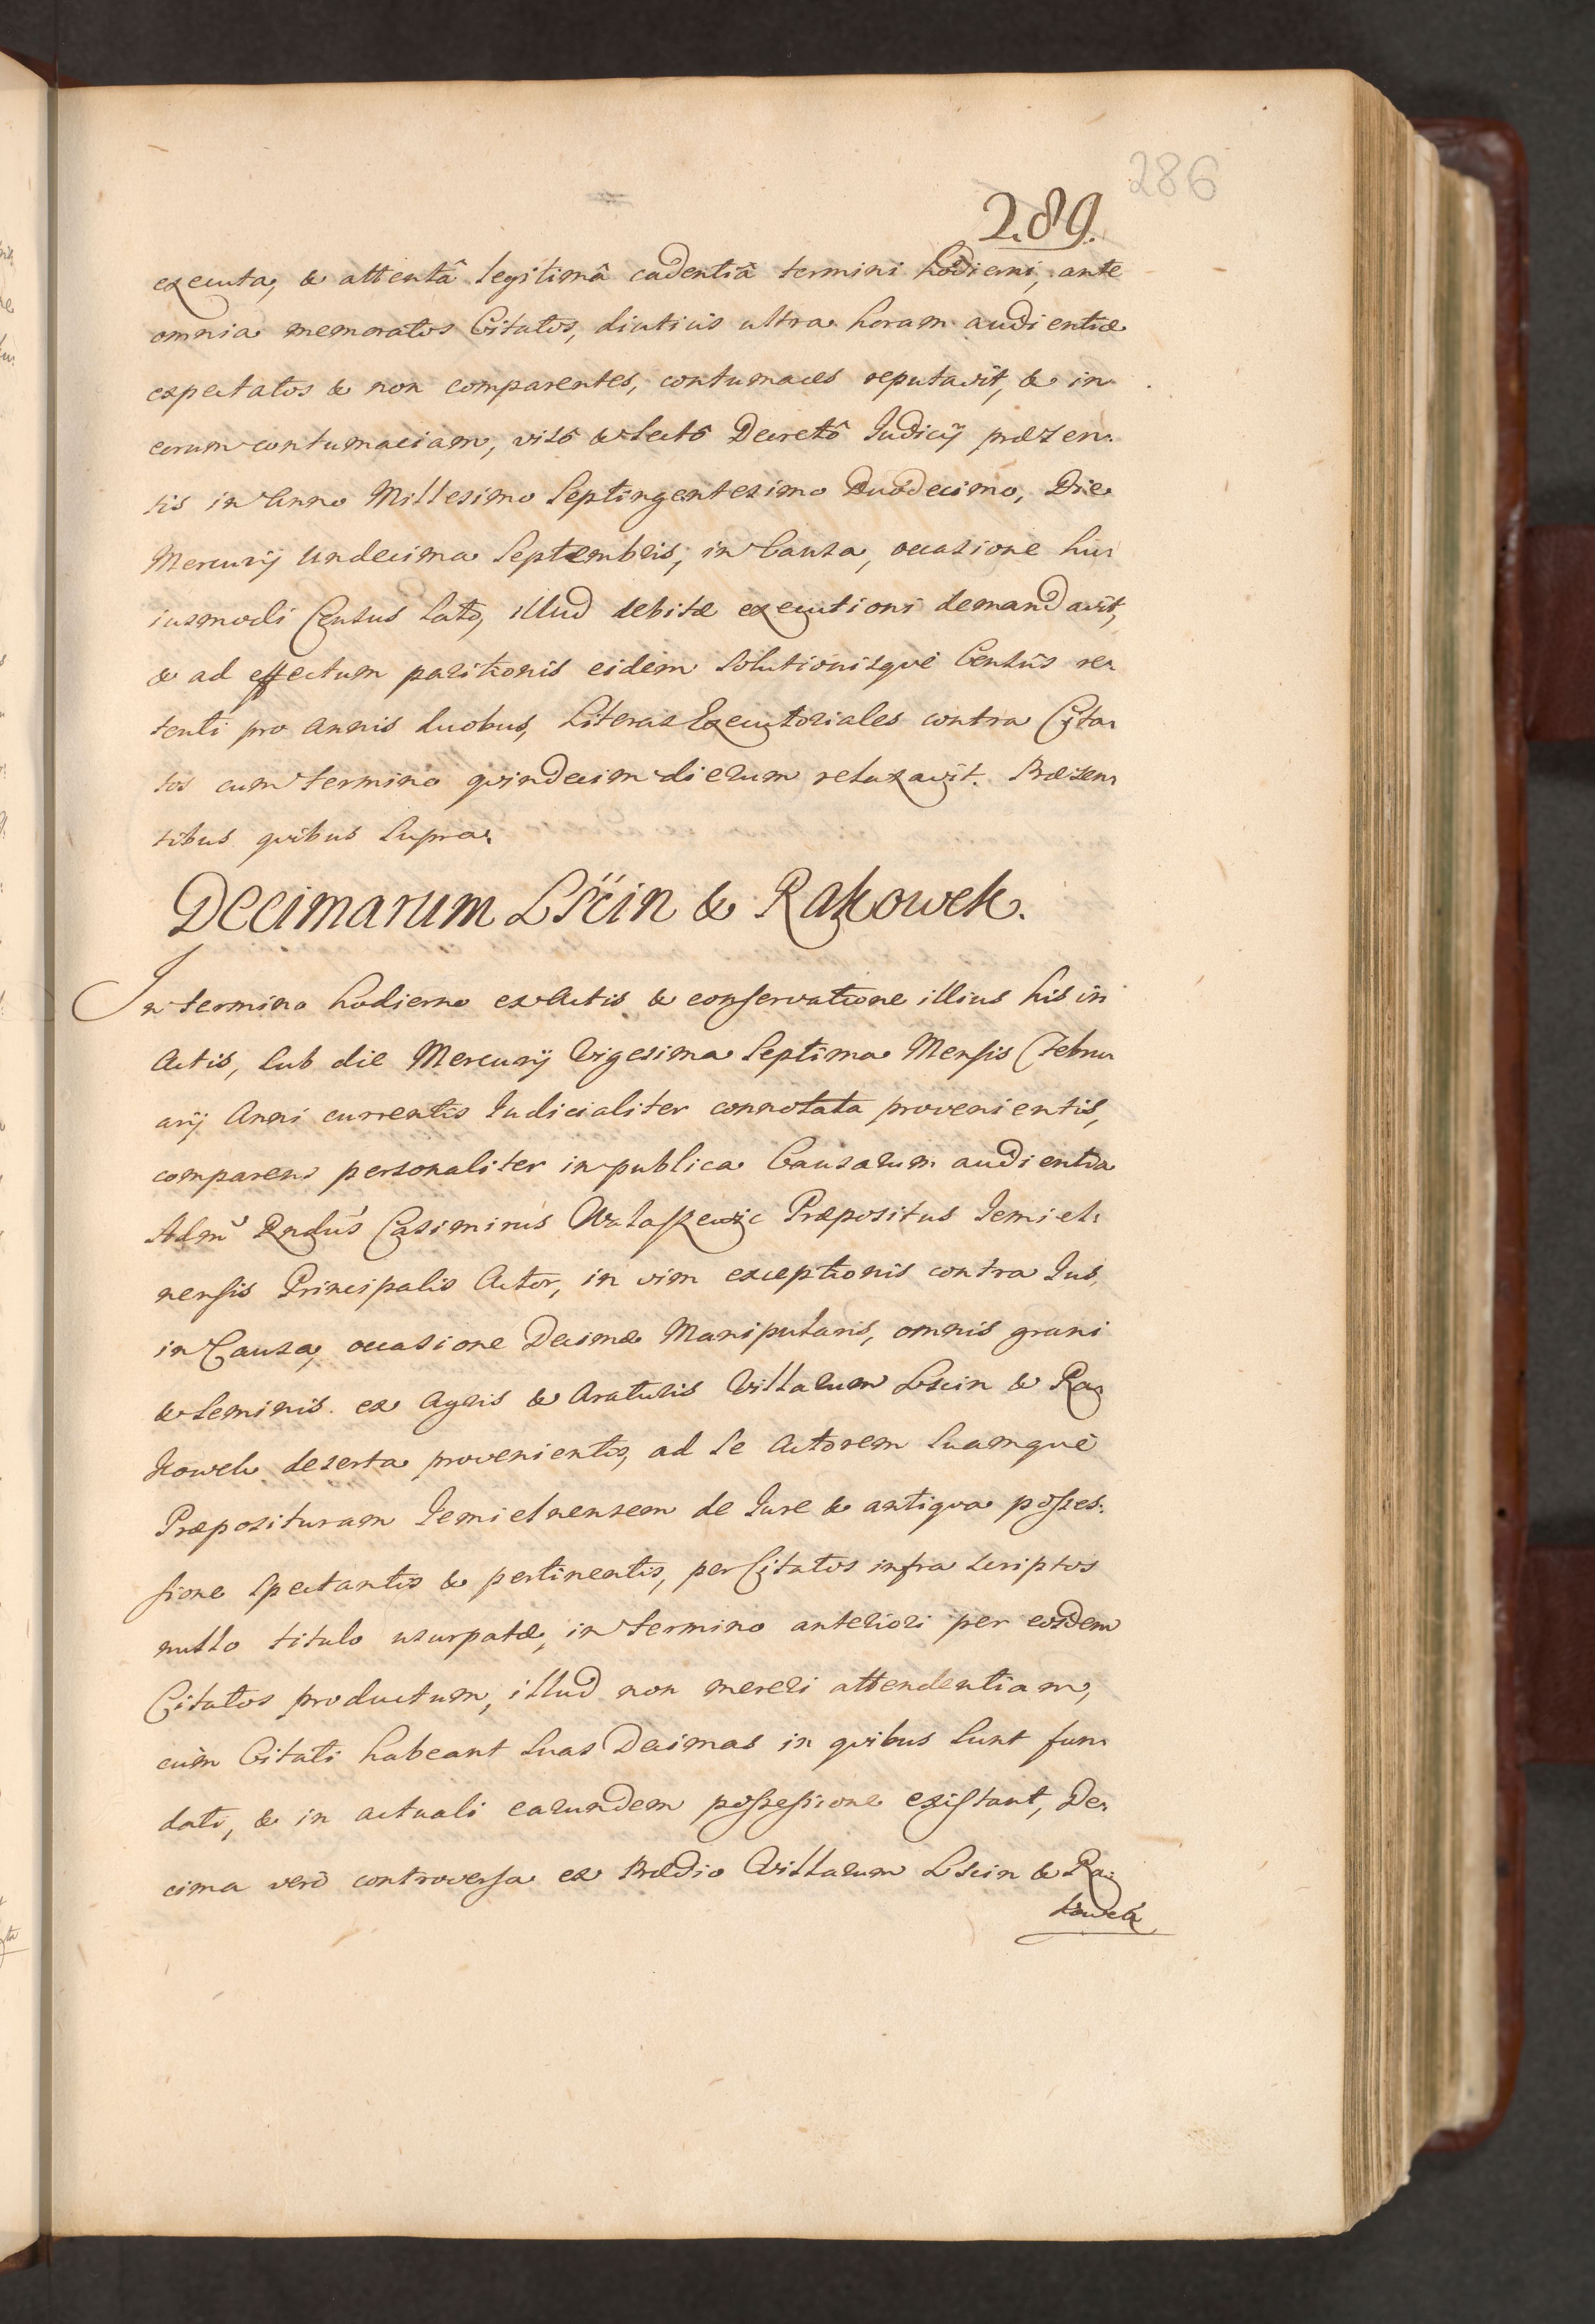 286
289.
executa, & attentâ legitimâ cadentiâ termini hodierni, ante
omnia memoratos Citatos, diutius ultra horam audientiæ
expectatos & non comparentes, contumaces reputavit, & in
eorum contumaciam, visô & lectô Decretô Iudicij præzen:
tis in Anno Millesimo Septingentesimo Duodecimo, Die
Mercurij Undecima Septembris, in Causa, occasione hu:
iusmodi Census lato, illud debitæ executioni demandavit,
& ad effectum paritionis eidem solutionisque Censûs re:
tenti pro annis duobus, Literas Executoriales contra Cita:
tos cum termino quindecim dierum relaxavit. Præsen:
tibus quibus supra.
Decimarum Lścin & Rakowek.
In termino hodierno ex Actis & conservatione illius his in
Actis, sub die Mercurij Vigesima Septima Mensis Febru:
arij Anni currentis Iudicialiter connotata provenientis,
comparens personaliter in publica Causarum audientia
Adm Rndus Casimirus Præpositus Iemiel:
nensis Principalis Actor, in vim exceptionis contra Ius,
in Causa, occasione Decimæ Manipularis, omnis grani
& seminis ex Agris & Araturis Villarum Lscin & Ra:
kowek deserta provenientis, ad se Actorem suamque
Præposituram Iemielnensem de Iure & antiqua posses:
sione spectantis & pertinentis, per Citatos infra scriptos
nullo titulo usurpatæ, in termino anteriori per eosdem
Citatos productum, illud non mereri attendentiam,
cum Citati habeant suas Decimas in quibus sunt fun:
dati, & in actuali earundem possessione existant, De:
cima verò controversa ex Prædio Villarum Lscin & Ra:
kowek